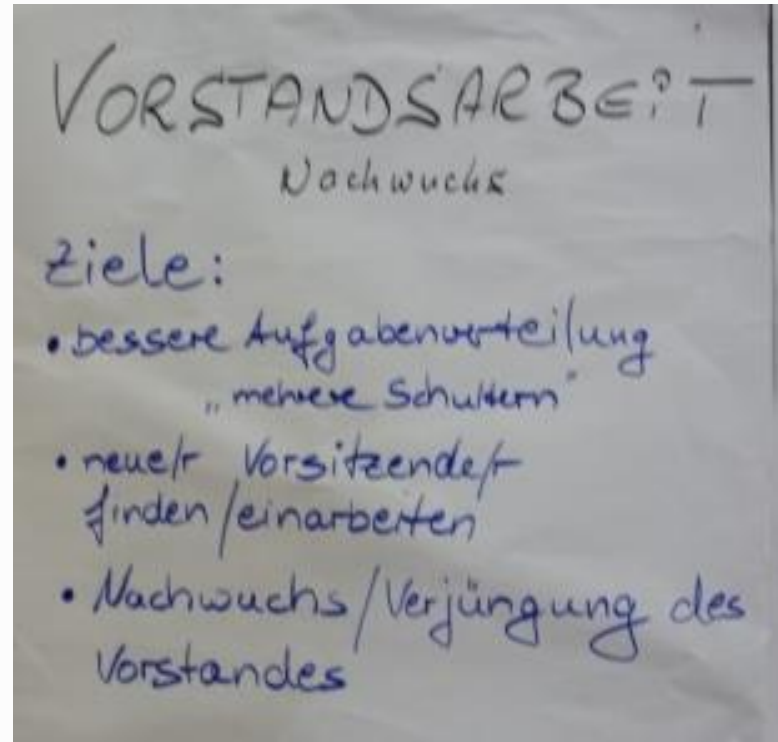 VORSTANDSARBEIT
Nachwuchs
Ziele:
• bessere Aufgabenverteilung
„mehrere Schultern"
• neue/r Vorsitzende/r
finden/einarbeiten
• Nachwuchs/Verjüngung des
Vorstandes